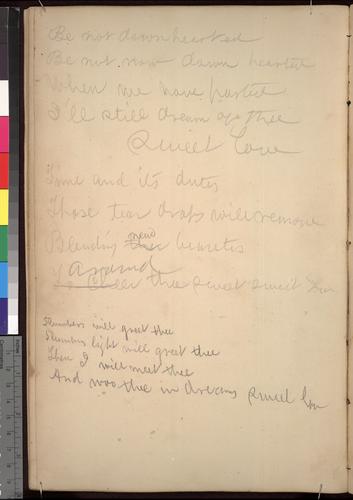 Be not downhearted
Be not now down hearted
When we have parted
I'll still dream of thee
Sweet Love
Time and its duties
Those tear drops will remove
Blending new beauties
Around
thee sweet sweet Love
Slumbers will greet thee
Slumbers light will greet thee
Then I will meet thee
And woo thee in dreams Sweet Love